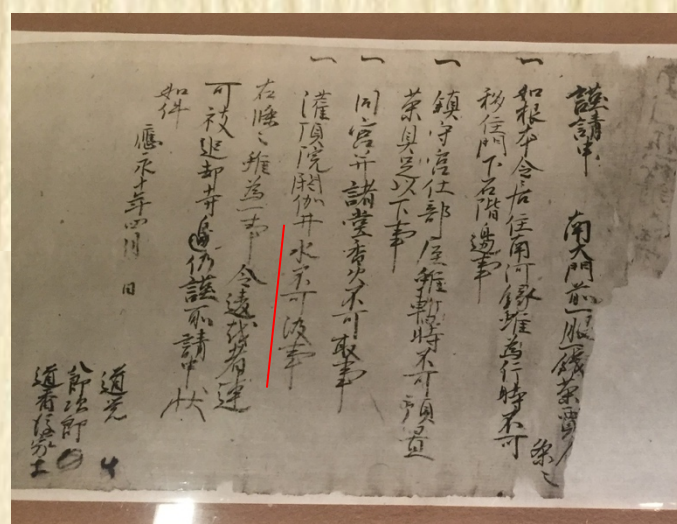 謹請申 南大門前一服一銭茶賣人條々
一 如根本令居住南河縁雖為片時不可
移住門下石階邊事
一 鎮守宮仕部屋雖暫時不可預置
茶具足以下事
一 同宮并諸堂香火不可取事
一 灌頂院閼伽井水不可汲事
右條々雖為一事令違越者速
可被追却寺邊仍謹所請申状
如件
應永十年四月 日
道覚
八郎次郎
道香後家